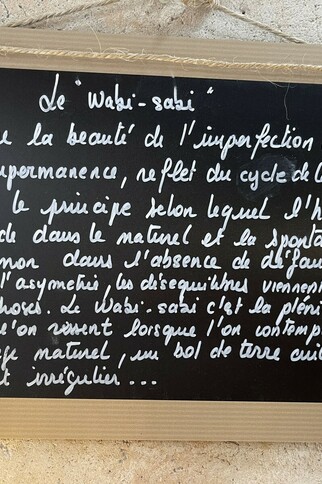 Le "Wabi-sabi"
la beauté de l'imperfection
permanence, reflet du cycle de
le principe selon lequel l'h
dans le naturel et la sponta
non dans l'absence de défau
l'asymétrie, les déséquilibres viennent
hoses. Le Wabi-sabi c'est la pléni
l'on ressent lorsque l'on contemp
naturel, un bol de terre cui
irrégulier...